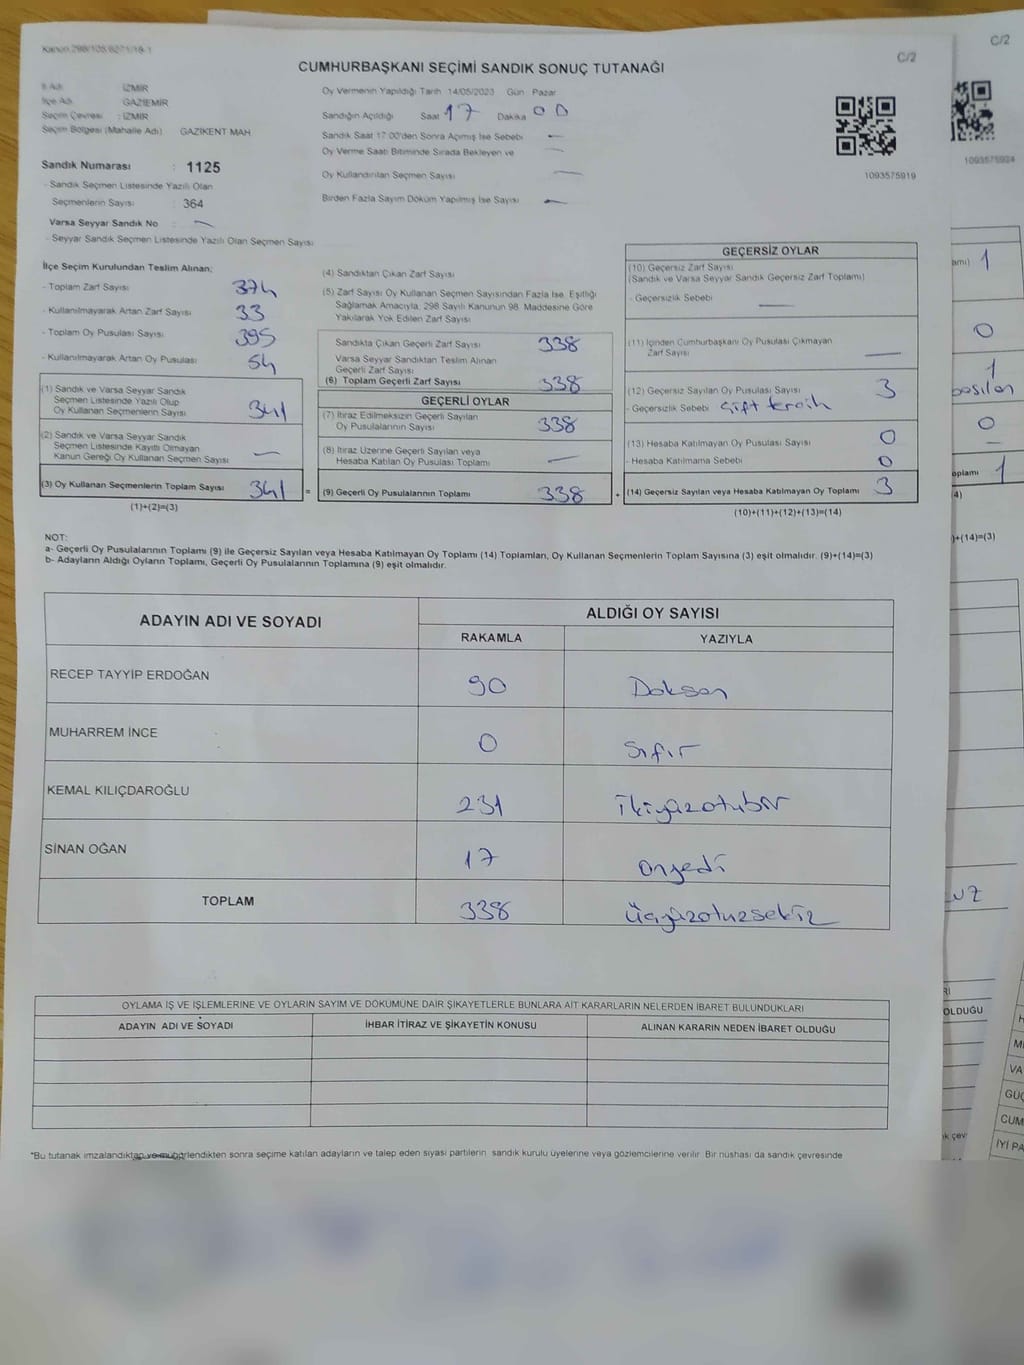 Kanun 298/105,6271/18-1
C/2
CUMHURBAŞKANI SEÇİMİ SANDIK SONUÇ TUTANAĞI
İl Adı : İZMİR
İlçe Adı : GAZİEMİR
Seçim Çevresi : İZMİR
Seçim Bölgesi (Mahalle Adı) GAZİKENT MAH
Sandık Numarası : 1125
- Sandık Seçmen Listesinde Yazılı Olan
Seçmenlerin Sayısı : 364
Varsa Seyyar Sandık No : —
- Seyyar Sandık Seçmen Listesinde Yazılı Olan Seçmen Sayısı
Oy Vermenin Yapıldığı Tarih 14/05/2023 Gün Pazar
Sandığın Açıldığı Saat 17 Dakika 00
Sandık Saat 17:00'den Sonra Açımış İse Sebebi —
Oy Verme Saati Bitiminde Sırada Bekleyen ve —
Oy Kullandırılan Seçmen Sayısı —
Birden Fazla Sayım Döküm Yapılmış İse Sayısı —
1093575919
İlçe Seçim Kurulundan Teslim Alınan;
- Toplam Zarf Sayısı 374
- Kullanılmayarak Artan Zarf Sayısı 33
- Toplam Oy Pusulası Sayısı 395
- Kullanılmayarak Artan Oy Pusulası 54
(1) Sandık ve Varsa Seyyar Sandık
Seçmen Listesinde Yazılı Olup
Oy Kullanan Seçmenlerin Sayısı 341
(2) Sandık ve Varsa Seyyar Sandık
Seçmen Listesinde Kayıtlı Olmayan
Kanun Gereği Oy Kullanan Seçmen Sayısı —
(3) Oy Kullanan Seçmenlerin Toplam Sayısı 341 =
(1)+(2)=(3)
(4) Sandıktan Çıkan Zarf Sayısı
(5) Zarf Sayısı Oy Kullanan Seçmen Sayısından Fazla İse, Eşitliği
Sağlamak Amacıyla, 298 Sayılı Kanunun 98. Maddesine Göre
Yakılarak Yok Edilen Zarf Sayısı
Sandıkta Çıkan Geçerli Zarf Sayısı 338
Varsa Seyyar Sandıktan Teslim Alınan
Geçerli Zarf Sayısı
(6) Toplam Geçerli Zarf Sayısı 338
GEÇERLİ OYLAR
(7) İtiraz Edilmeksizin Geçerli Sayılan
Oy Pusulalarının Sayısı 338
(8) İtiraz Üzerine Geçerli Sayılan veya
Hesaba Katılan Oy Pusulası Toplamı —
(9) Geçerli Oy Pusulalarının Toplamı 338 +
GEÇERSİZ OYLAR
(10) Geçersiz Zarf Sayısı
(Sandık ve Varsa Seyyar Sandık Geçersiz Zarf Toplamı)
- Geçersizlik Sebebi —
(11) İçinden Cumhurbaşkanı Oy Pusulası Çıkmayan
Zarf Sayısı —
(12) Geçersiz Sayılan Oy Pusulası Sayısı 3
- Geçersizlik Sebebi Çift tercih
(13) Hesaba Katılmayan Oy Pusulası Sayısı 0
- Hesaba Katılmama Sebebi 0
(14) Geçersiz Sayılan veya Hesaba Katılmayan Oy Toplamı 3
(10)+(11)+(12)+(13)=(14)
NOT:
a- Geçerli Oy Pusulalarının Toplamı (9) ile Geçersiz Sayılan veya Hesaba Katılmayan Oy Toplamı (14) Toplamları, Oy Kullanan Seçmenlerin Toplam Sayısına (3) eşit olmalıdır. (9)+(14)=(3)
b- Adayların Aldığı Oyların Toplamı, Geçerli Oy Pusulalarının Toplamına (9) eşit olmalıdır.
ADAYIN ADI VE SOYADI
ALDIĞI OY SAYISI
RAKAMLA YAZIYLA
RECEP TAYYİP ERDOĞAN 90 Doksan
MUHARREM İNCE 0 Sıfır
KEMAL KILIÇDAROĞLU 231 İkiyüzotuzbir
SİNAN OĞAN 17 Onyedi
TOPLAM 338 Üçyüzotuzsekiz
OYLAMA İŞ VE İŞLEMLERİNE VE OYLARIN SAYIM VE DÖKÜMÜNE DAİR ŞİKAYETLERLE BUNLARA AİT KARARLARIN NELERDEN İBARET BULUNDUKLARI
ADAYIN ADI VE SOYADI İHBAR İTİRAZ VE ŞİKAYETİN KONUSU ALINAN KARARIN NEDEN İBARET OLDUĞU
*Bu tutanak imzalandıktan ve mühürlendikten sonra seçime katılan adayların ve talep eden siyasi partilerin sandık kurulu üyelerine veya gözlemcilerine verilir. Bir nüshası da sandık çevresinde
C/2
1093575924
amı) 1
0
1
basılan
0
—
oplamı 1
4)
)+(14)=(3)
uz
Rİ
OLDUĞU
ık çev
VA
CUM
İYİ PA